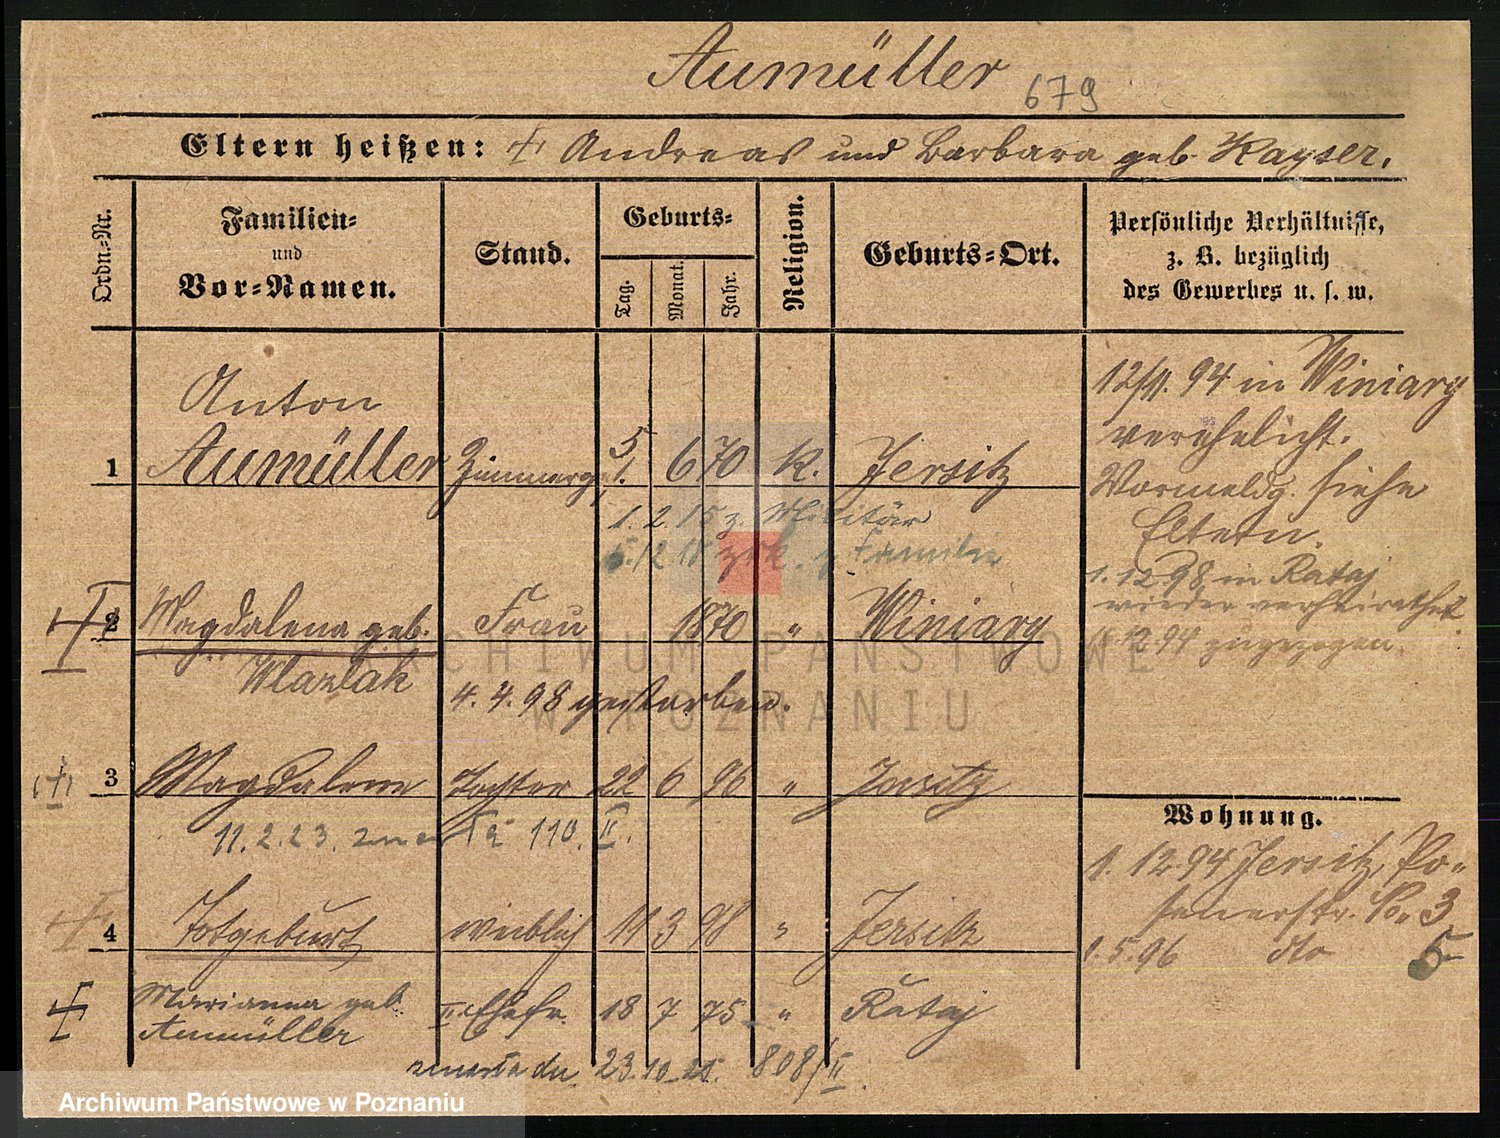 Aumüller 679
Eltern heißen: Andreas und Barbara geb. Kayser.
Ordn.-Nr.
Familien-
und
Vor-Namen.
Stand.
Geburts-
Tag.
Monat.
Jahr.
Religion.
Geburts-Ort.
Persönliche Verhältnisse,
z. B. bezüglich
des Gewerbes u. s. w.
Anton
1 Aumüller Zimmerges. 5 1. 6 70 K. Jersitz
1. 2. 15 z. Militär
5.12.18 zrk. z. Familie
2 Magdalena geb. Frau 1870 " Winiary
Wlazlak
4. 4. 98 gestorben.
3 Magdalena Tochter 22 6 96 " Jersitz
11. 2. 23. 110. II.
4 Totgeburt weiblich 11 3 98 " Jersitz
Marianna geb. II Ehefr. 18 7 75 " Rataj
Aumüller
zmarła dn. 23.10 25. 808/II.
12/11. 94 in Winiary
verehelicht.
Vormeldg. siehe
Eltern.
1. 12 98 in Rataj
wieder verheirathet
12 94 zugezogen.
Wohnung.
1. 12 94 Jersitz, Po-
senerstr. No. 3
1. 5. 96 dto 5
ARCHIWUM PAŃSTWOWE
W POZNANIU
Archiwum Państwowe w Poznaniu